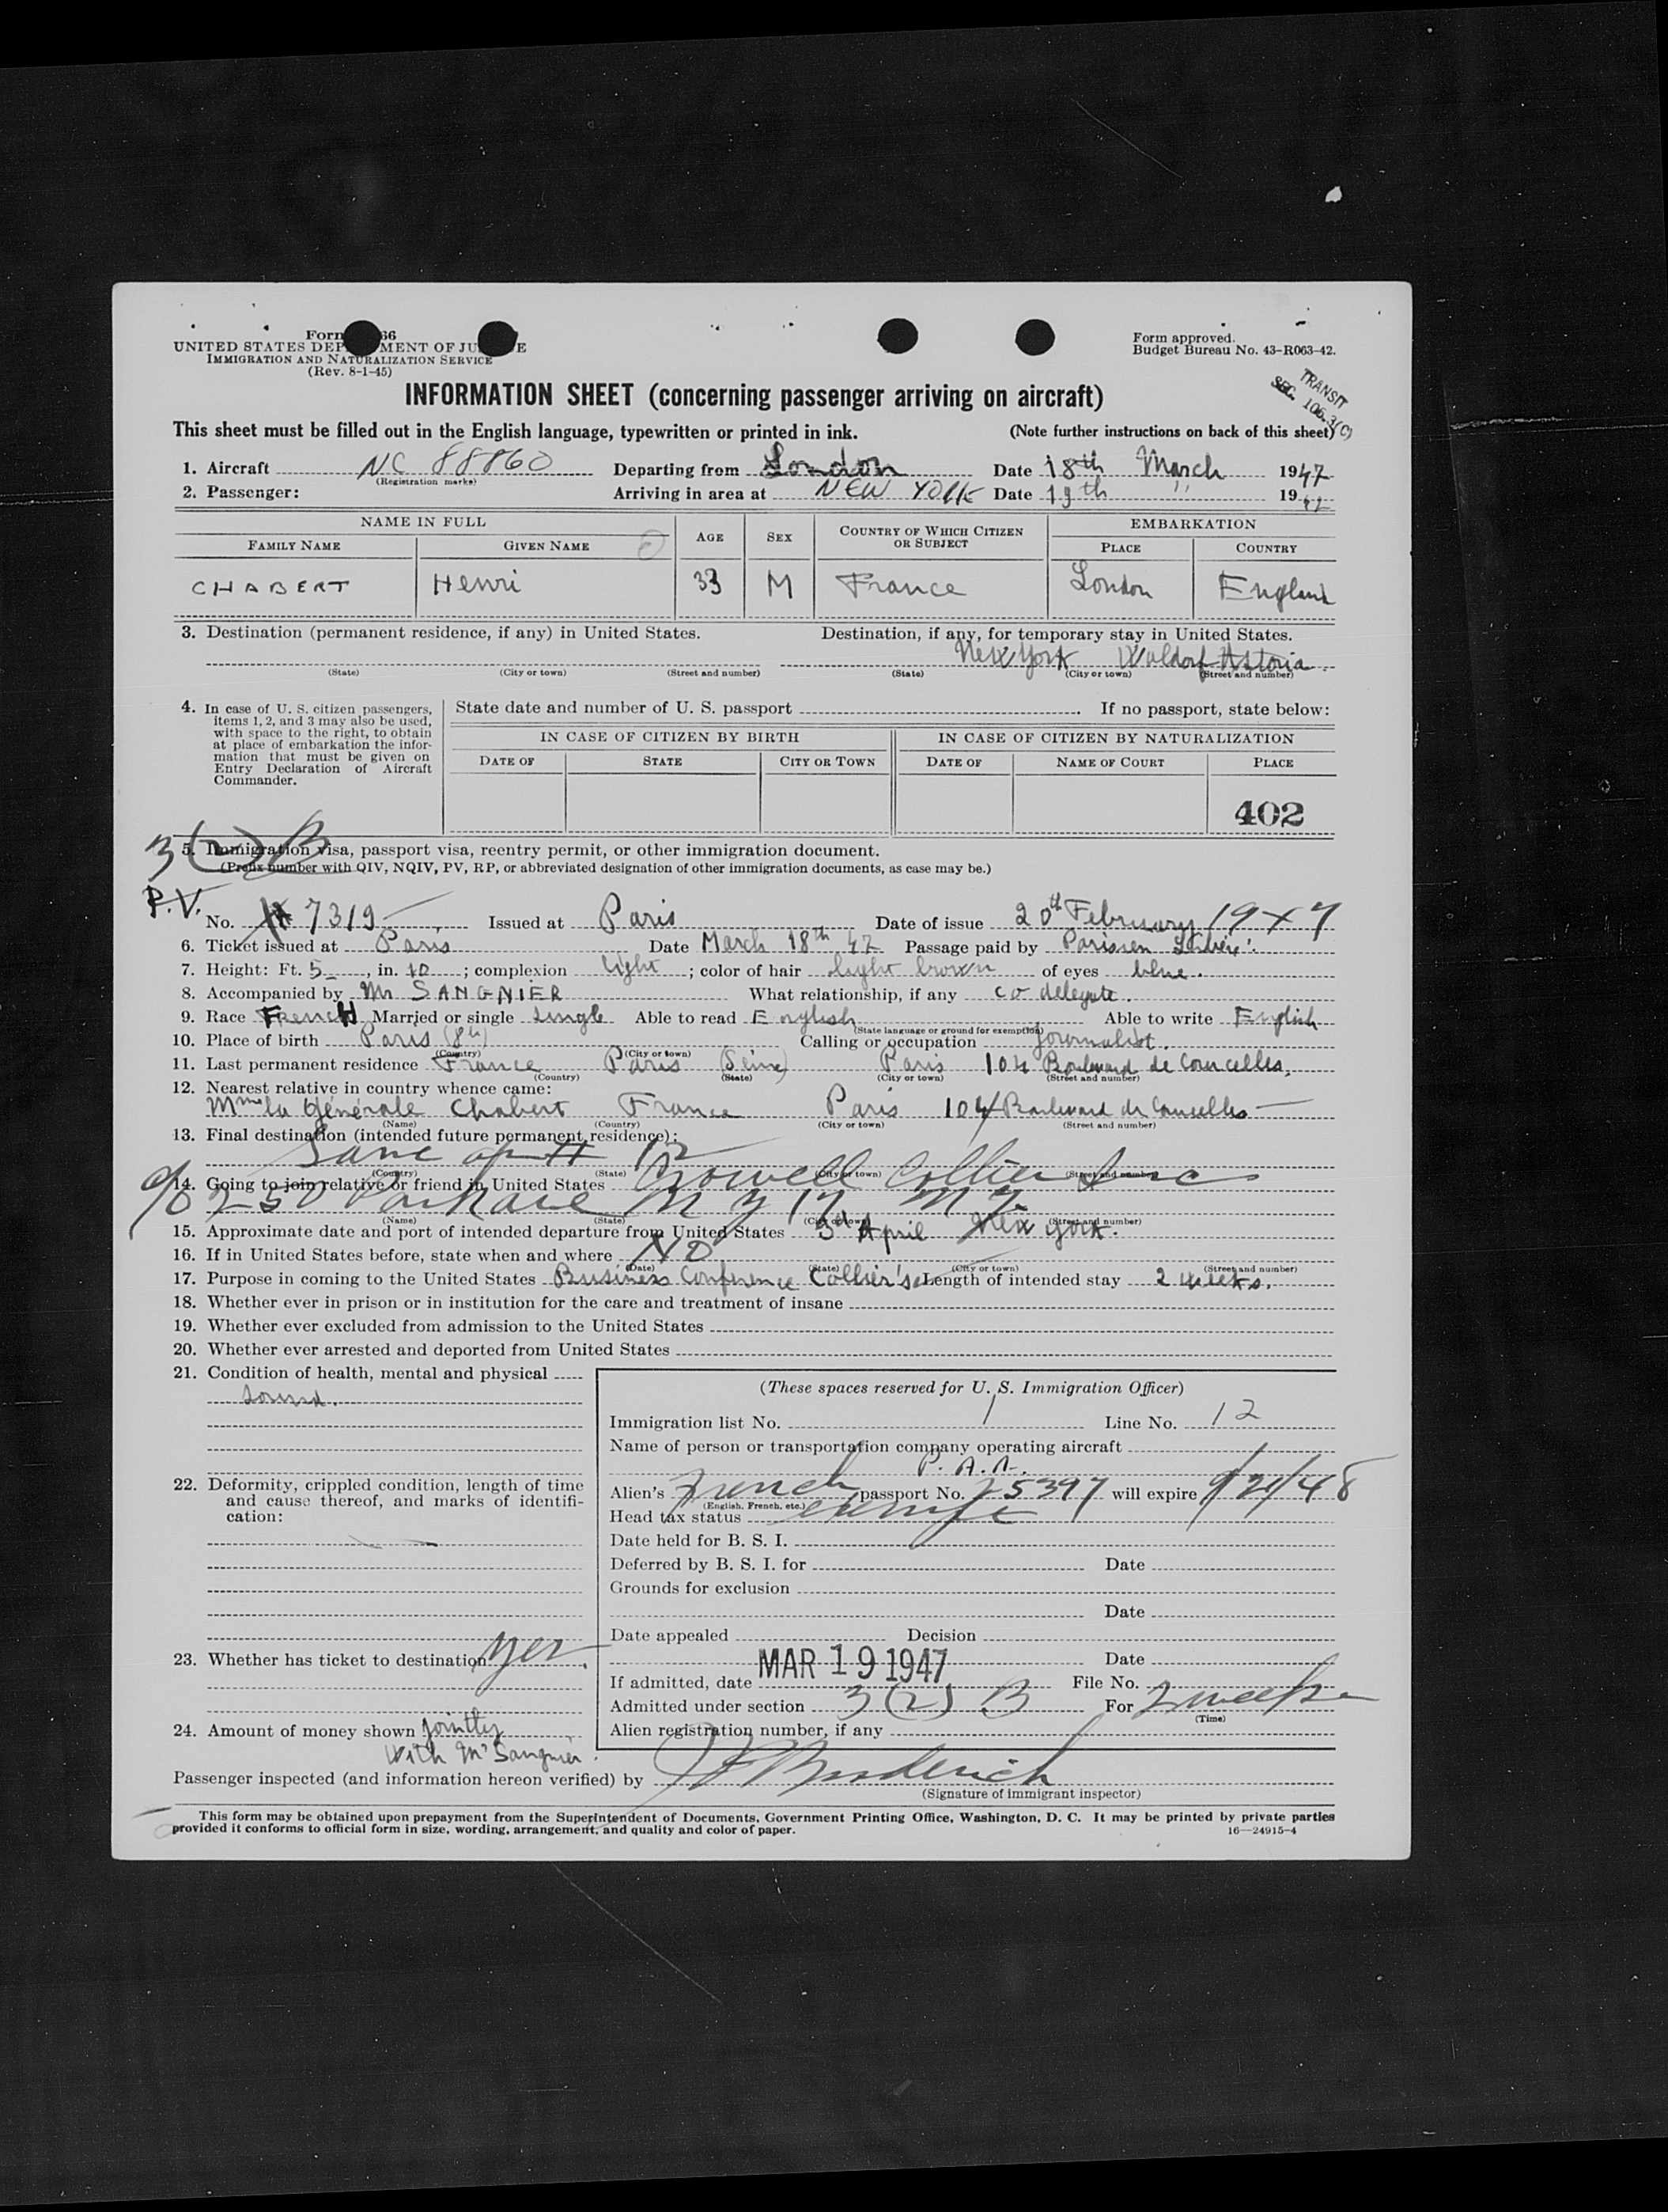 Form 66
UNITED STATES DEP MENT OF JU E
IMMIGRATION AND NATURALIZATION SERVICE
(Rev. 8-1-45)
Form approved.
Budget Bureau No. 43-R063-42.
TRANSIT
SEC. 106.3(C)
INFORMATION SHEET (concerning passenger arriving on aircraft)
This sheet must be filled out in the English language, typewritten or printed in ink. (Note further instructions on back of this sheet)
1. Aircraft NC 88860 Departing from London Date 18th March 1947
(Registration marks)
2. Passenger: Arriving in area at NEW YORK Date 19th " 19
NAME IN FULL AGE SEX COUNTRY OF WHICH CITIZEN OR SUBJECT EMBARKATION
FAMILY NAME GIVEN NAME PLACE COUNTRY
CHABERT Henri 33 M France London England
3. Destination (permanent residence, if any) in United States. Destination, if any, for temporary stay in United States.
New York Waldorf Astoria
(State) (City or town) (Street and number) (State) (City or town) (Street and number)
4. In case of U. S. citizen passengers, items 1, 2, and 3 may also be used, with space to the right, to obtain at place of embarkation the information that must be given on Entry Declaration of Aircraft Commander.
State date and number of U. S. passport . If no passport, state below:
IN CASE OF CITIZEN BY BIRTH IN CASE OF CITIZEN BY NATURALIZATION
DATE OF STATE CITY OR TOWN DATE OF NAME OF COURT PLACE
402
3(2)B
5. Immigration visa, passport visa, reentry permit, or other immigration document.
(Prefix number with QIV, NQIV, PV, RP, or abbreviated designation of other immigration documents, as case may be.)
P.V.
No. 7319 Issued at Paris Date of issue 20th February 1947
6. Ticket issued at Paris Date March 18th 47 Passage paid by Parisien
7. Height: Ft. 5, in. 10; complexion light; color of hair light brown of eyes blue.
8. Accompanied by Mr SANGNIER What relationship, if any co delegate.
9. Race French Married or single single Able to read English Able to write English
(State language or ground for exemption)
10. Place of birth Paris (8th) Calling or occupation journalist.
(Country) (City or town)
11. Last permanent residence France Paris (Seine) Paris 104 Boulevard de Courcelles.
(Country) (State) (City or town) (Street and number)
12. Nearest relative in country whence came:
Mme la Générale Chabert France Paris 104 Boulevard de Courcelles
(Name) (Country) (City or town) (Street and number)
13. Final destination (intended future permanent residence):
Same # 12
(Country) (State) (City or town) (Street and number)
14. Going to join relative or friend in United States Crowell Collier Inc
c/o 250 Park ave N Y 17 N Y.
(Name) (State) (City or town) (Street and number)
15. Approximate date and port of intended departure from United States 3d April New York.
16. If in United States before, state when and where NO
(Date) (State) (City or town) (Street and number)
17. Purpose in coming to the United States Business Conference Collier's Length of intended stay 2 weeks.
18. Whether ever in prison or in institution for the care and treatment of insane
19. Whether ever excluded from admission to the United States
20. Whether ever arrested and deported from United States
21. Condition of health, mental and physical
Sound.
22. Deformity, crippled condition, length of time and cause thereof, and marks of identification:
23. Whether has ticket to destination yes.
24. Amount of money shown jointly
with Mr Sangnier.
(These spaces reserved for U. S. Immigration Officer)
Immigration list No. 1 Line No. 12
Name of person or transportation company operating aircraft
P. A. A.
Alien's French passport No. 25397 will expire 9/21/48
(English, French, etc.)
Head tax status exempt
Date held for B. S. I.
Deferred by B. S. I. for Date
Grounds for exclusion
Date
Date appealed Decision
Date
If admitted, date MAR 19 1947 File No.
Admitted under section 3(2) B For 2 weeks
(Time)
Alien registration number, if any
Passenger inspected (and information hereon verified) by
(Signature of immigrant inspector)
This form may be obtained upon prepayment from the Superintendent of Documents, Government Printing Office, Washington, D. C. It may be printed by private parties
provided it conforms to official form in size, wording, arrangement, and quality and color of paper.
16—24915-4